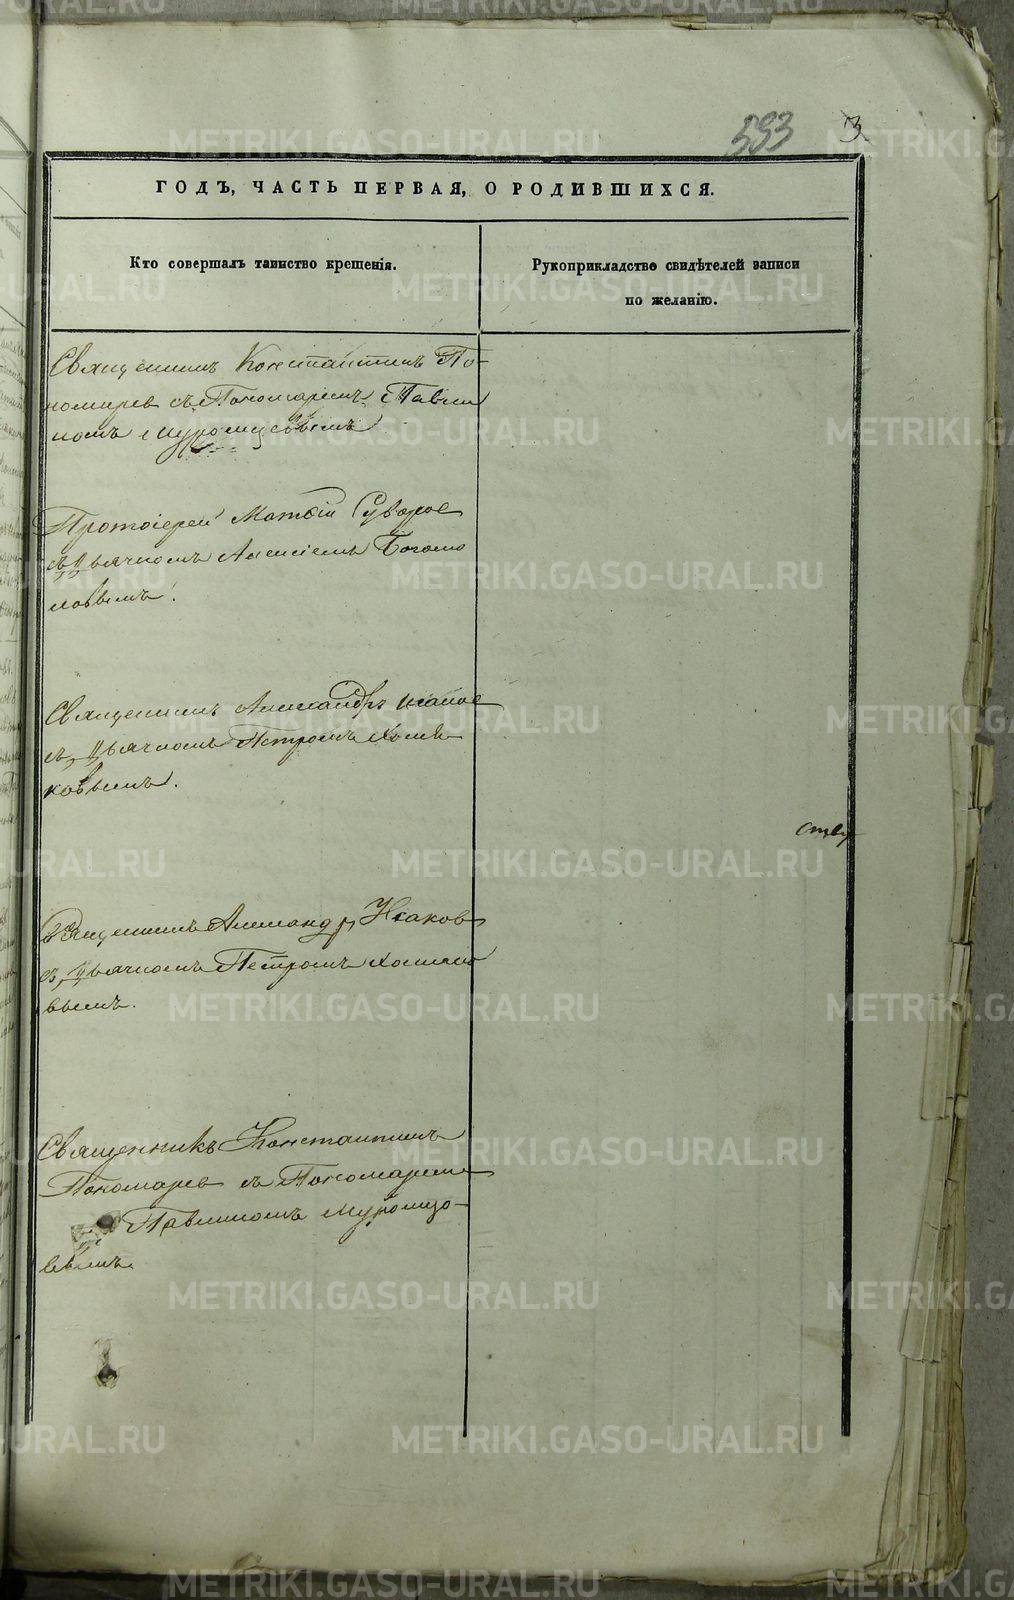 593 3
ГОДЪ, ЧАСТЬ ПЕРВАЯ, О РОДИВШИХСЯ.
Кто совершалъ таинство крещенія.
Рукоприкладство свидѣтелей записи
по желанію.
Священникъ Константинъ По-
номарев съ Пономаремъ Павли
номъ Муромцовымъ
Протоіерей Матѳій Суворов
съ Дьячкомъ Алексіемъ Богомо
ловымъ.
Священникъ Александръ Исаков
съ Дьячкомъ Петромъ Хомя
ковымъ.
Священникъ Александръ Исаков
съ Дьячкомъ Петромъ Хомяко
вымъ.
Священникъ Константинъ
Пономарев съ Пономаремъ
Павлиномъ Муромцо-
вымъ.
METRIKI.GASO-URAL.RU